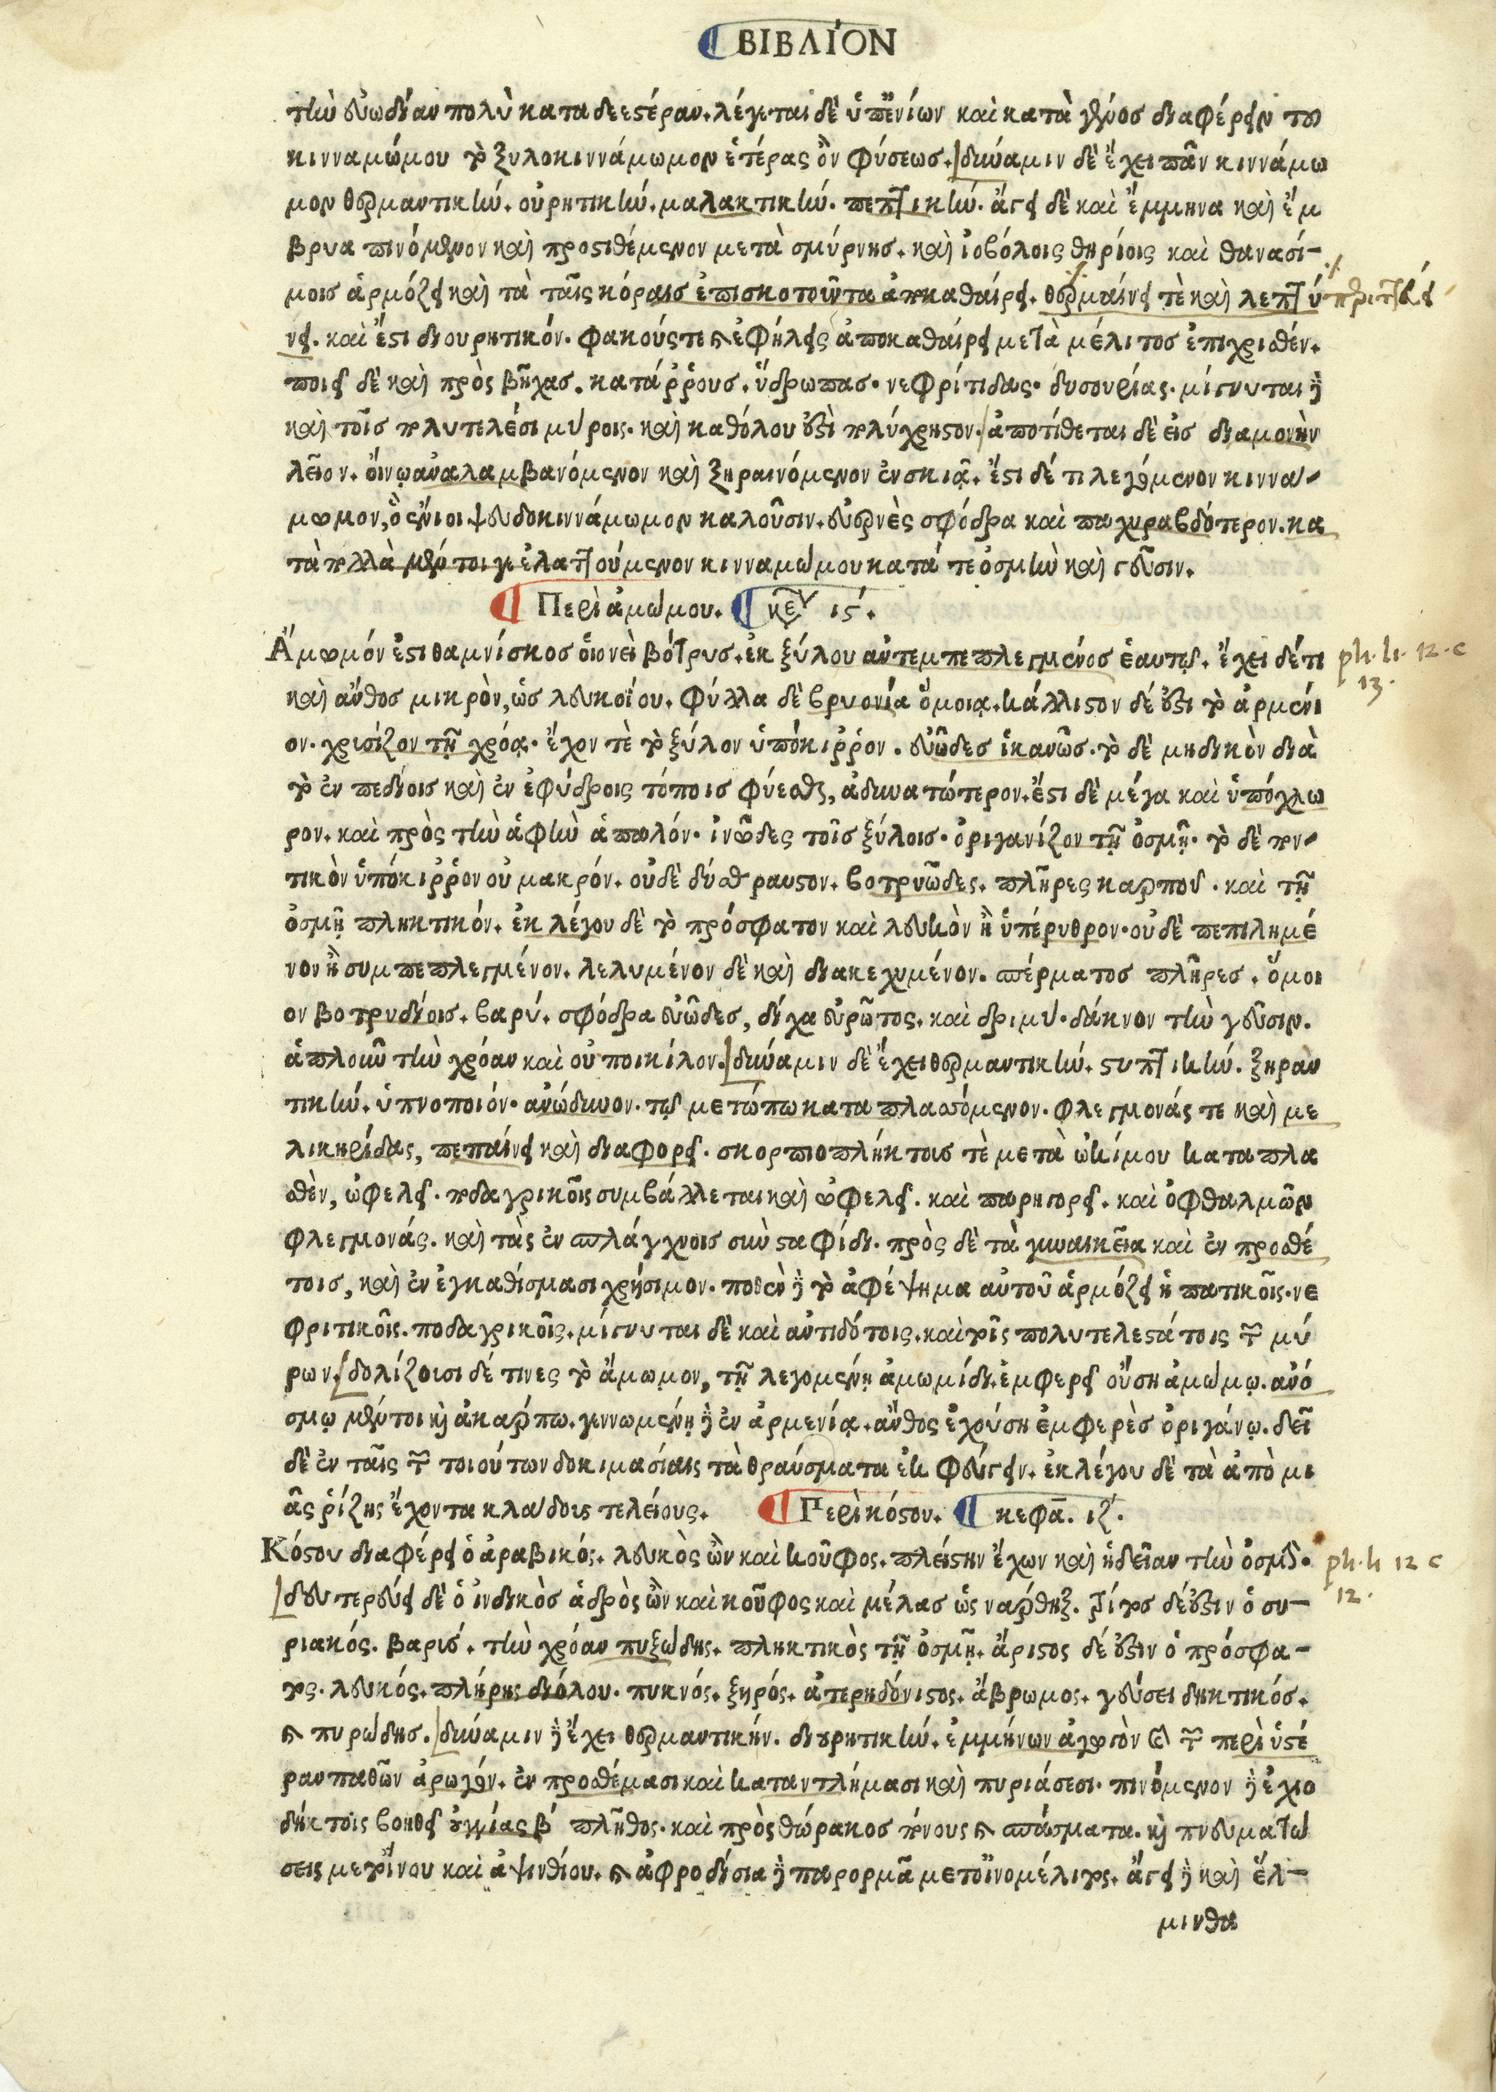 ΒΙΒΛΊΟΝ
τὴν εὐωδίαν πολὺ καταδεεστέραν. λέγεται δὲ ὑπ' ἐνίων καὶ κατὰ γένος διαφέρειν του
κινναμώμου τὸ ξυλοκιννάμωμον ἑτέρας ὂν φύσεως. δύναμιν δὲ ἔχει πᾶν κιννάμω
μον θερμαντικήν. οὐρητικήν. μαλακτικήν. πεπτικήν. ἄγει δὲ καὶ ἔμμηνα καὶ ἔμ
βρυα πινόμενον καὶ προστιθέμενον μετὰ σμύρνης. καὶ ἰοβόλοις θηρίοις καὶ θανασί-
μοις ἁρμόζει καὶ τὰ ταῖς κόραις ἐπισκοτοῦντα ἀποκαθαίρει. θερμαίνει τὲ καὶ λεπτύ
νει. καὶ ἔστι διουρητικόν. φακούς τε καὶ ἐφήλεις ἀποκαθαίρει μετὰ μέλιτος ἐπιχρισθέν.
ποιεῖ δὲ καὶ πρὸς βῆχας. κατάῤῥους. ὕδρωπας. νεφρίτιδας. δυσουρίας. μίγνυται δὲ
καὶ τοῖς πολυτελέσι μύροις. καὶ καθόλου ἐστὶ πολύχρηστον. ἀποτίθεται δὲ εἰς διαμονὴν
λεῖον. οἴνῳ ἀναλαμβανόμενον καὶ ξηραινόμενον ἐν σκιᾷ. ἔστι δέ τι λεγόμενον κιννά-
μωμον, ὃ ἔνιοι ψευδοκιννάμωμον καλοῦσιν. εὐερνὲς σφόδρα καὶ παχυραβδότερον. κα
τὰ πολλὰ μέντοιγε ἐλαττούμενον κινναμώμου κατά τε ὀσμὴν καὶ γεῦσιν.
Περὶ ἀμώμου. κεφ ις΄.
Ἄμωμόν ἐστι θαμνίσκος οἱονεὶ βότρυς. ἐκ ξύλου ἀντεμπεπλεγμένος ἑαυτῷ. ἔχει δέ τι
καὶ ἄνθος μικρὸν, ὡς λευκοΐου. φύλλα δὲ βρυονίᾳ ὅμοια. κάλλιστον δέ ἐστι τὸ ἀρμένι
ον. χρυσίζον τῇ χρόᾳ. ἔχον τὲ τὸ ξύλον ὑπόκιῤῥον. εὐῶδες ἱκανῶς. τὸ δὲ μηδικὸν διὰ
τὸ ἐν πεδίοις καὶ ἐν ἐφύδροις τόποις φύεσθαι, ἀδυνατώτερον. ἔστι δὲ μέγα καὶ ὑπόχλω
ρον. καὶ πρὸς τὴν ἁφὴν ἁπαλόν. ἰνῶδες τοῖς ξύλοις. ὀριγανίζον τῇ ὀσμῇ. τὸ δὲ πον-
τικὸν ὑπόκιῤῥον οὐ μακρόν. οὐδὲ δύσθραυστον. βοτρυῶδες. πλῆρες καρποῦ. καὶ τῇ
ὀσμῇ πληκτικόν. ἐκλέγου δὲ τὸ πρόσφατον καὶ λευκὸν ἢ ὑπέρυθρον. οὐδὲ πεπιλημέ
νον ἢ συμπεπλεγμένον. λελυμένον δὲ καὶ διακεχυμένον. σπέρματος πλῆρες. ὅμοι
ον βοτρυδίοις. βαρύ. σφόδρα εὐῶδες, δίχα εὐρῶτος. καὶ δριμύ. δάκνον τὴν γεῦσιν.
ἁπλοῦν τὴν χρόαν καὶ οὐ ποικίλον. δύναμιν δὲ ἔχει θερμαντικήν. στυπτικήν. ξηραν
τικήν. ὑπνοποιόν. ἀνώδυνον. τῷ μετώπῳ καταπλασσόμενον. φλεγμονάς τε καὶ με
λικηρίδας, πεπαίνει καὶ διαφορεῖ. σκορπιοπλήκτοις τὲ μετὰ ὠκίμου καταπλα
σθὲν, ὠφελεῖ. ποδαγρικοῖς συμβάλλεται καὶ ὠφελεῖ. καὶ παρηγορεῖ. καὶ ὀφθαλμῶν
φλεγμονάς. καὶ τὰς ἐν σπλάγχνοις σὺν σταφίδι. πρὸς δὲ τὰ γυναικεῖα καὶ ἐν προσθέ
τοις, καὶ ἐν ἐγκαθίσμασι χρήσιμον. ποθὲν δὲ τὸ ἀφέψημα αὐτοῦ ἁρμόζει ἡπατικοῖς. νε
φριτικοῖς. ποδαγρικοῖς. μίγνυται δὲ καὶ ἀντιδότοις. καὶ τοῖς πολυτελεστάτοις τῶν μύ
ρων. δολίζουσι δέ τινες τὸ ἄμωμον, τῇ λεγομένῃ ἀμωμίδι. ἐμφερεῖ οὔσῃ ἀμώμῳ. ἀνό
σμῳ μέντοι καὶ ἀκάρπῳ. γεννωμένῃ δὲ ἐν ἀρμενίᾳ. ἄνθος ἐχούσῃ ἐμφερὲς ὀριγάνῳ. δεῖ
δὲ ἐν ταῖς τῶν τοιούτων δοκιμασίαις τὰ θραύσματα ἐκφεύγειν. ἐκλέγου δὲ τὰ ἀπὸ μι
ᾶς ῥίζης ἔχοντα κλάδους τελείους. Περὶ κόστου. κεφα. ιζ΄.
Κόστου διαφέρει ὁ ἀραβικός. λευκὸς ὢν καὶ κοῦφος. πλείστην ἔχων καὶ ἡδεῖαν τὴν ὀσμήν.
δευτερεύει δὲ ὁ ἰνδικὸς ἁδρὸς ὢν καὶ κοῦφος καὶ μέλας ὡς νάρθηξ. τρίτος δέ ἐστιν ὁ συ-
ριακός. βαρύς. τὴν χρόαν πυξώδης. πληκτικὸς τῇ ὀσμῇ. ἄριστος δέ ἐστιν ὁ πρόσφα-
τος. λευκός. πλήρης διόλου. πυκνός. ξηρός. ἀτερηδόνιστος. ἄβρωμος. γεύσει δηκτικός.
καὶ πυρώδης. δύναμιν δὲ ἔχει θερμαντικήν. διουρητικήν. ἐμμήνων ἀγωγὸν καὶ τῶν περὶ ὑστέ
ραν παθῶν ἀρωγόν. ἐν προσθέμασι καὶ καταντλήμασι καὶ πυριάσεσι. πινόμενον δὲ ἐχιο
δήκτοις βοηθεῖ οὐγγίας β΄ πλῆθος. καὶ πρὸς θώρακος πόνους καὶ σπάσματα. καὶ πνευματώ
σεις μετ' οἴνου καὶ ἀψινθίου. καὶ ἀφροδίσια δὲ παρορμᾶ μετ' οἰνομέλιτος. ἄγει δὲ καὶ ἕλ-
μινθα
ph. li. 12. c
13.
ph. li 12 c
12.